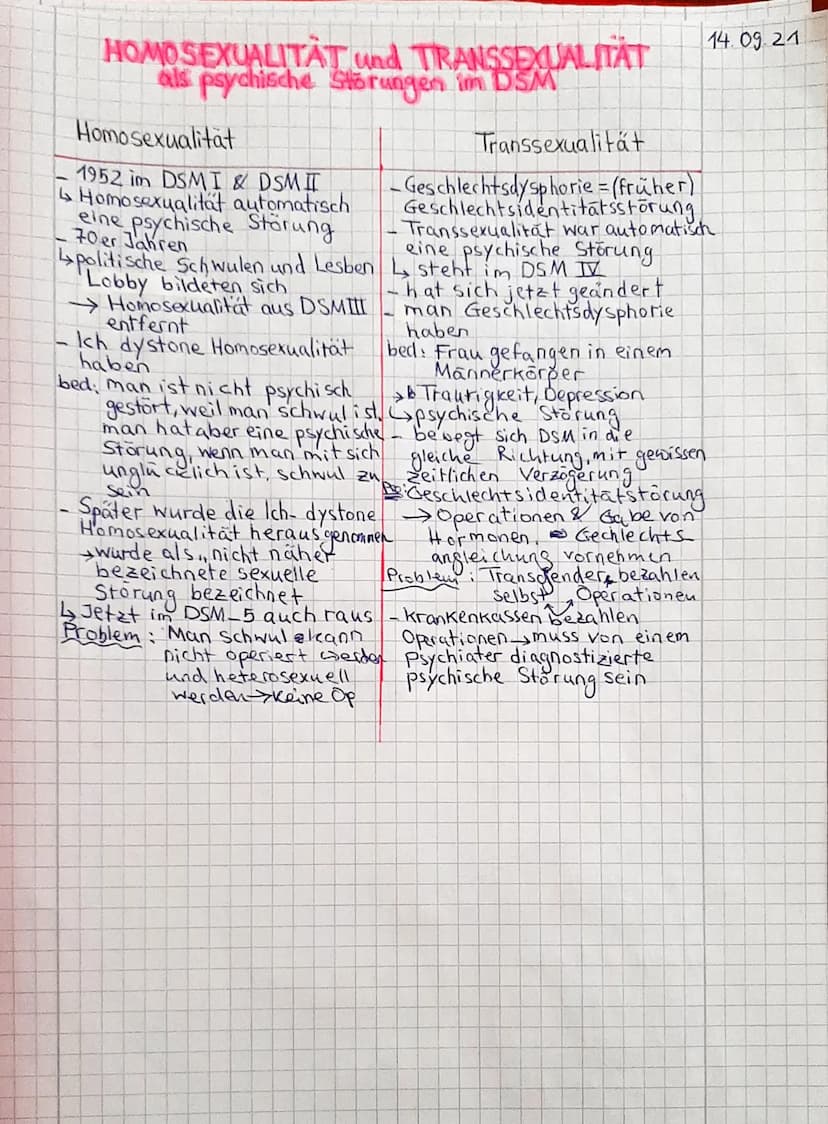 14.09.21
HOMOSEXUALITÄT und TRANSSEXUALITÄT
als psychische Störungen im DSM
Homosexualität
- 1952 im DSM I & DSM II
↳ Homosexualität automatisch
eine psychische Störung
- 70er Jahren
↳ politische Schwulen und Lesben
Lobby bildeten sich
→ Homosexualität aus DSM III
entfernt
- Ich dystone Homosexualität
haben
bed: man ist nicht psychisch
gestört, weil man schwul ist,
man hat aber eine psychische
Störung, wenn man mit sich
unglücklich ist, schwul zu
sein
- Später wurde die Ich-dystone
Homosexualität herausgenommen
→ wurde als „nicht näher
bezeichnete sexuelle
Störung bezeichnet
↳ Jetzt im DSM-5 auch raus
Problem: Man schwul kann
nicht operiert werden
und heterosexuell
werden → keine Op
Transsexualität
- Geschlechtsdysphorie = (früher)
Geschlechtsidentitätsstörung
- Transsexualität war automatisch
eine psychische Störung
↳ steht im DSM IV
- hat sich jetzt geändert
- man Geschlechtsdysphorie
haben
bed: Frau gefangen in einem
Männerkörper
↳ Traurigkeit, Depression
↳ psychische Störung
- bewegt sich DSM in die
gleiche Richtung, mit gewissen
zeitlichen Verzögerung
: Geschlechtsidentitätstörung
→ Operationen & Gabe von
Hormonen, Gechlechts
angleichung vornehmen
Problem: Transgender bezahlen
selbst Operationen
- Krankenkassen bezahlen
Operationen → muss von einem
Psychiater diagnostizierte
psychische Störung sein